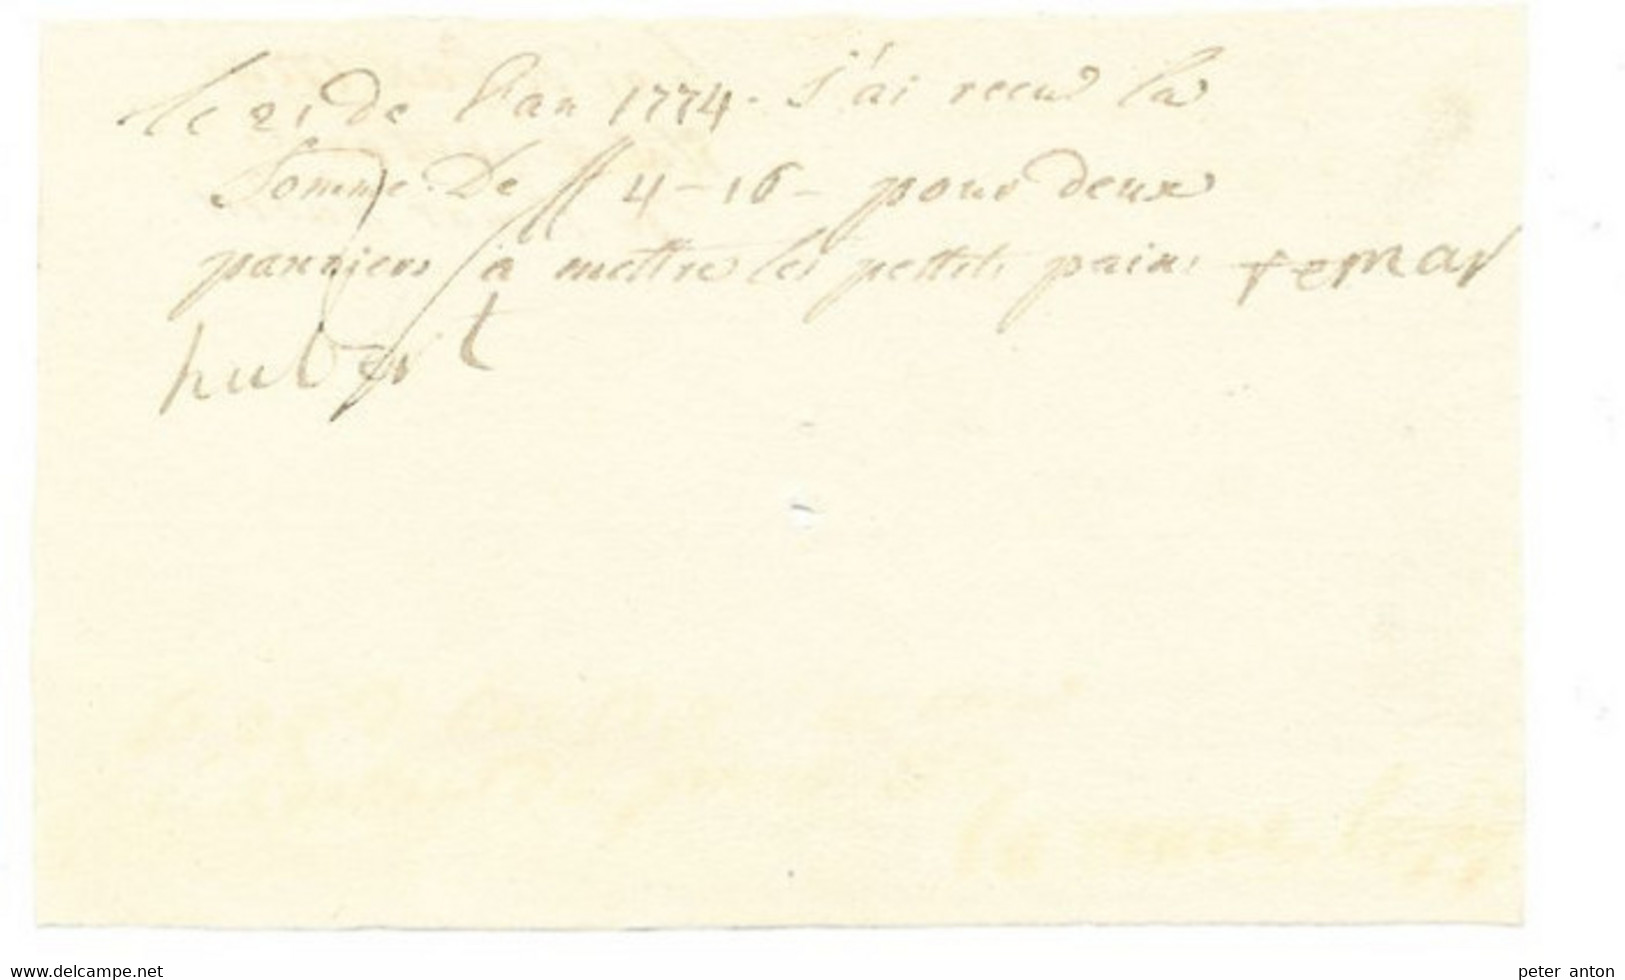 le 21 de l'an 1774. J'ai recu la
Somme De ff 4-16- pour deux
panniers à mettre les pettits pains femar
hubert
www.delcampe.net
peter anton